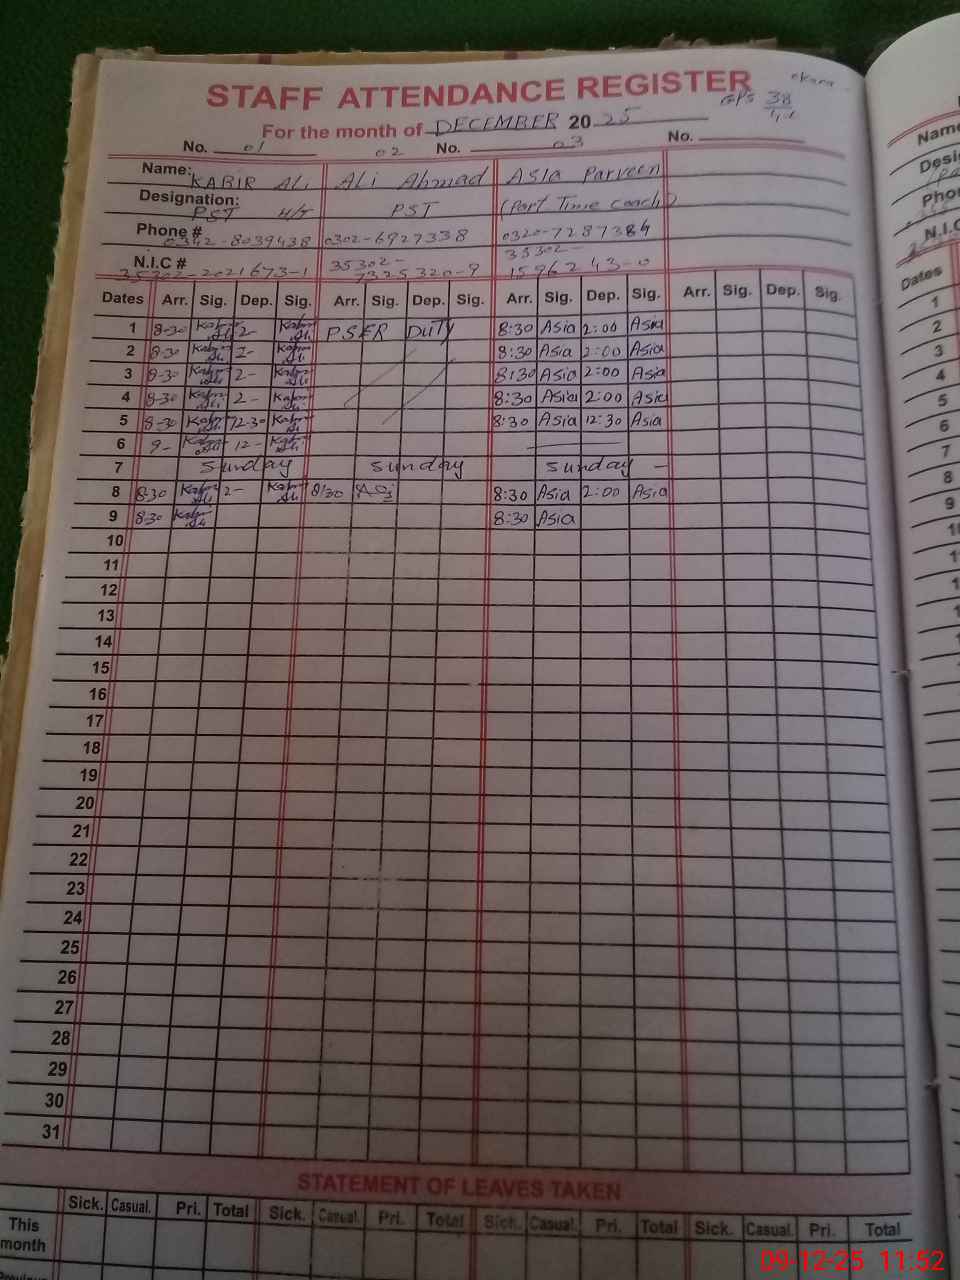 STAFF ATTENDANCE REGISTER
GPS 38
For the month of DECEMBER 20 25
No. 01 02 No. 03 No.
Name: KABIR ALi ALi Ahmad Asia Parveen
Designation: PST H/T PST (Part Time coach)
Phone # 0342-8039438 0302-6927338 0320-7287384
N.I.C # 35302-2021673-1 35302-7325320-9 35302-1596243-0
Dates Arr. Sig. Dep. Sig. Arr. Sig. Dep. Sig. Arr. Sig. Dep. Sig. Arr. Sig. Dep. Sig.
1 8-30 Kabir Ali 2- Kabir Ali PSER DUTY 8:30 Asia 2:00 Asia
2 8-30 Kabir Ali 2- Kabir Ali 8:30 Asia 2:00 Asia
3 8-30 Kabir Ali 2- Kabir Ali 8:30 Asia 2:00 Asia
4 8-30 Kabir Ali 2- Kabir Ali 8:30 Asia 2:00 Asia
5 8-30 Kabir Ali 12-30 Kabir Ali 8:30 Asia 12:30 Asia
6 9- Kabir Ali 12- Kabir Ali
7 Sunday Sunday Sunday
8 8-30 Kabir Ali 2- Kabir Ali 8:30 8:30 Asia 2:00 Asia
9 8-30 Kabir Ali 8:30 Asia
10
11
12
13
14
15
16
17
18
19
20
21
22
23
24
25
26
27
28
29
30
31
STATEMENT OF LEAVES TAKEN
Sick. Casual. Pri. Total Sick. Casual. Pri. Total Sick. Casual. Pri. Total Sick. Casual. Pri. Total
This month
Name
Phon
N.I.C
Dates
1
2
3
4
5
6
7
8
9
09-12-25 11:52